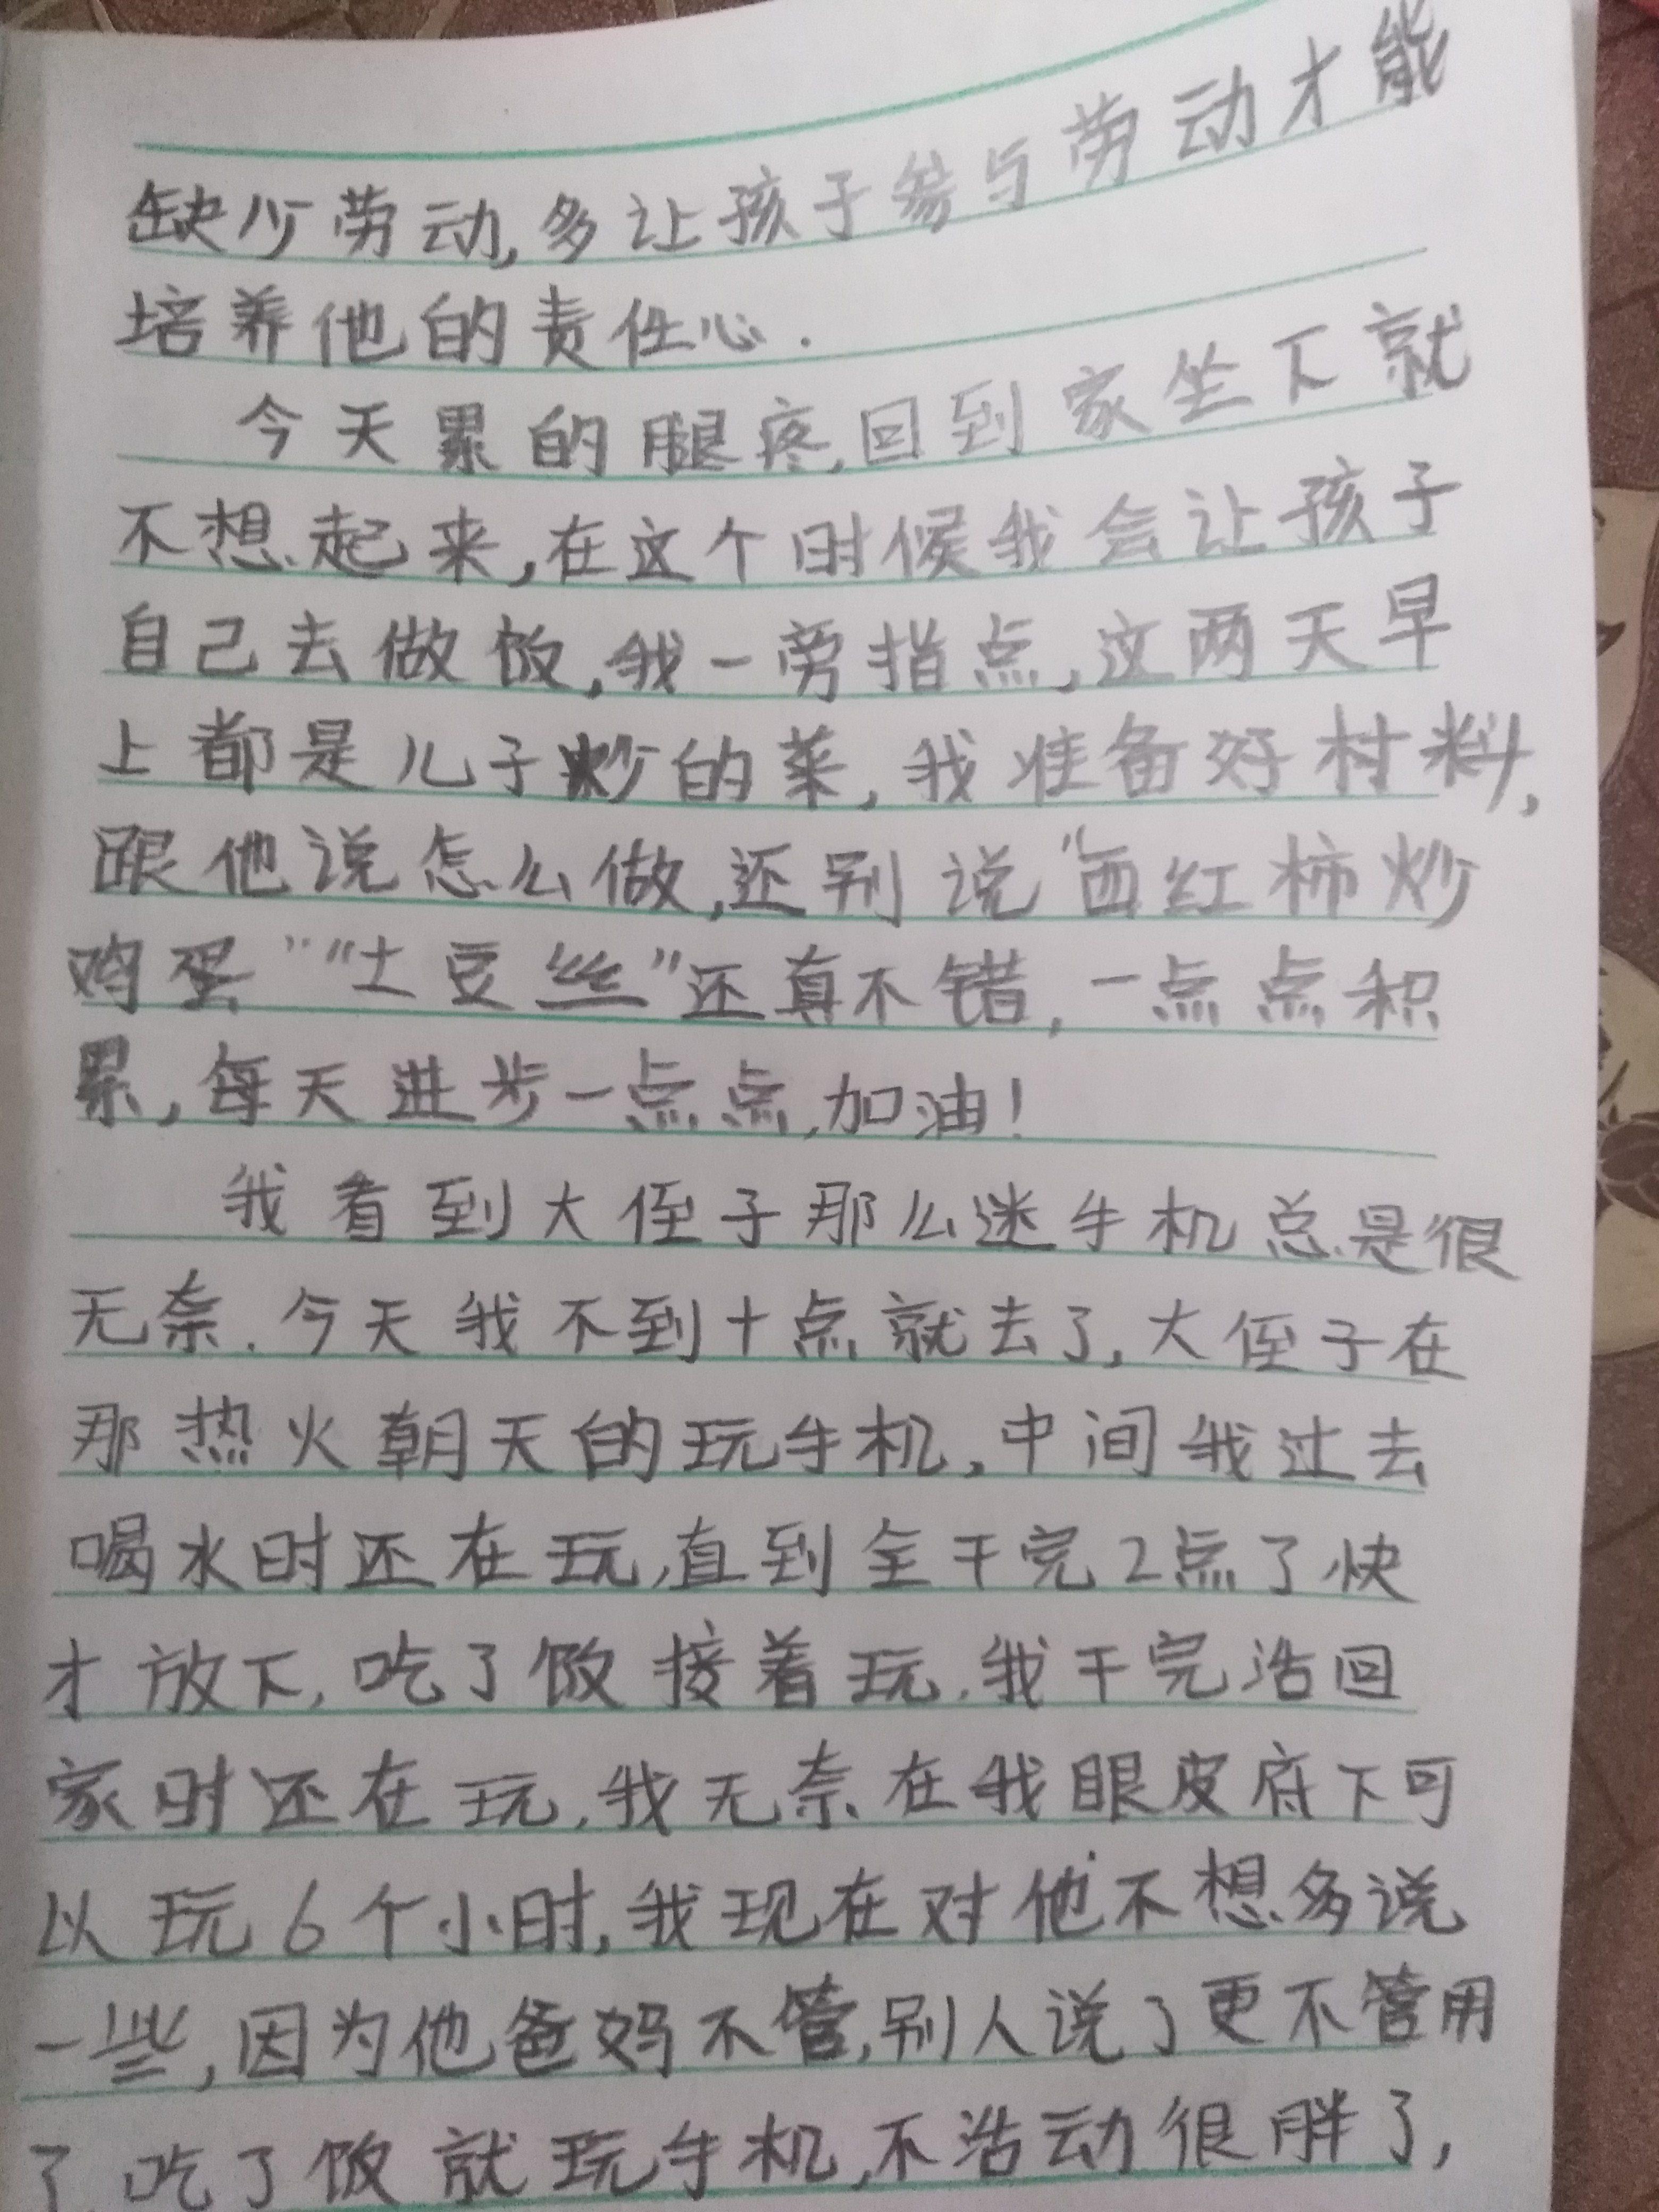 缺少劳动,多让孩子参与劳动才能
培养他的责任心.
今天累的腿疼,回到家坐下就
不想起来,在这个时候我会让孩子
自己去做饭,我一旁指点,这两天早
上都是儿子炒的菜,我准备好材料,
跟他说怎么做,还别说"西红柿炒
鸡蛋""土豆丝"还真不错,一点点积
累,每天进步一点点,加油!
我看到大侄子那么迷手机总是很
无奈.今天我不到十点就去了,大侄子在
那热火朝天的玩手机,中间我过去
喝水时还在玩,直到全干完2点了快
才放下,吃了饭接着玩,我干完活回
家时还在玩,我无奈在我眼皮底下可
以玩6个小时,我现在对他不想多说
一些,因为他爸妈不管,别人说了更不管用
了.吃了饭就玩手机,不活动很胖了,